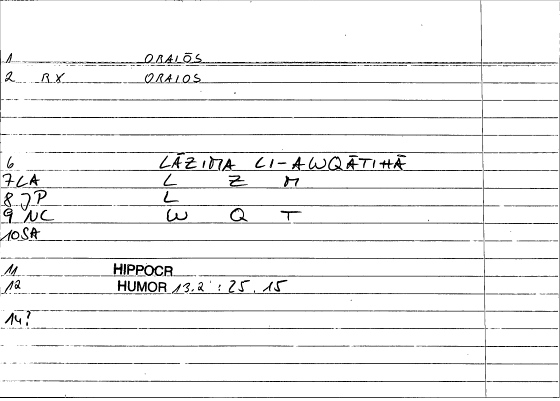 1 ORAIŌS
2 RX ORAIOS
6 LĀZIMA LI-AWQĀTIHĀ
7 LA L Z M
8 JP L
9 NC W Q T
10 SA
11 HIPPOCR
12 HUMOR 13.2 : 25.15
14?